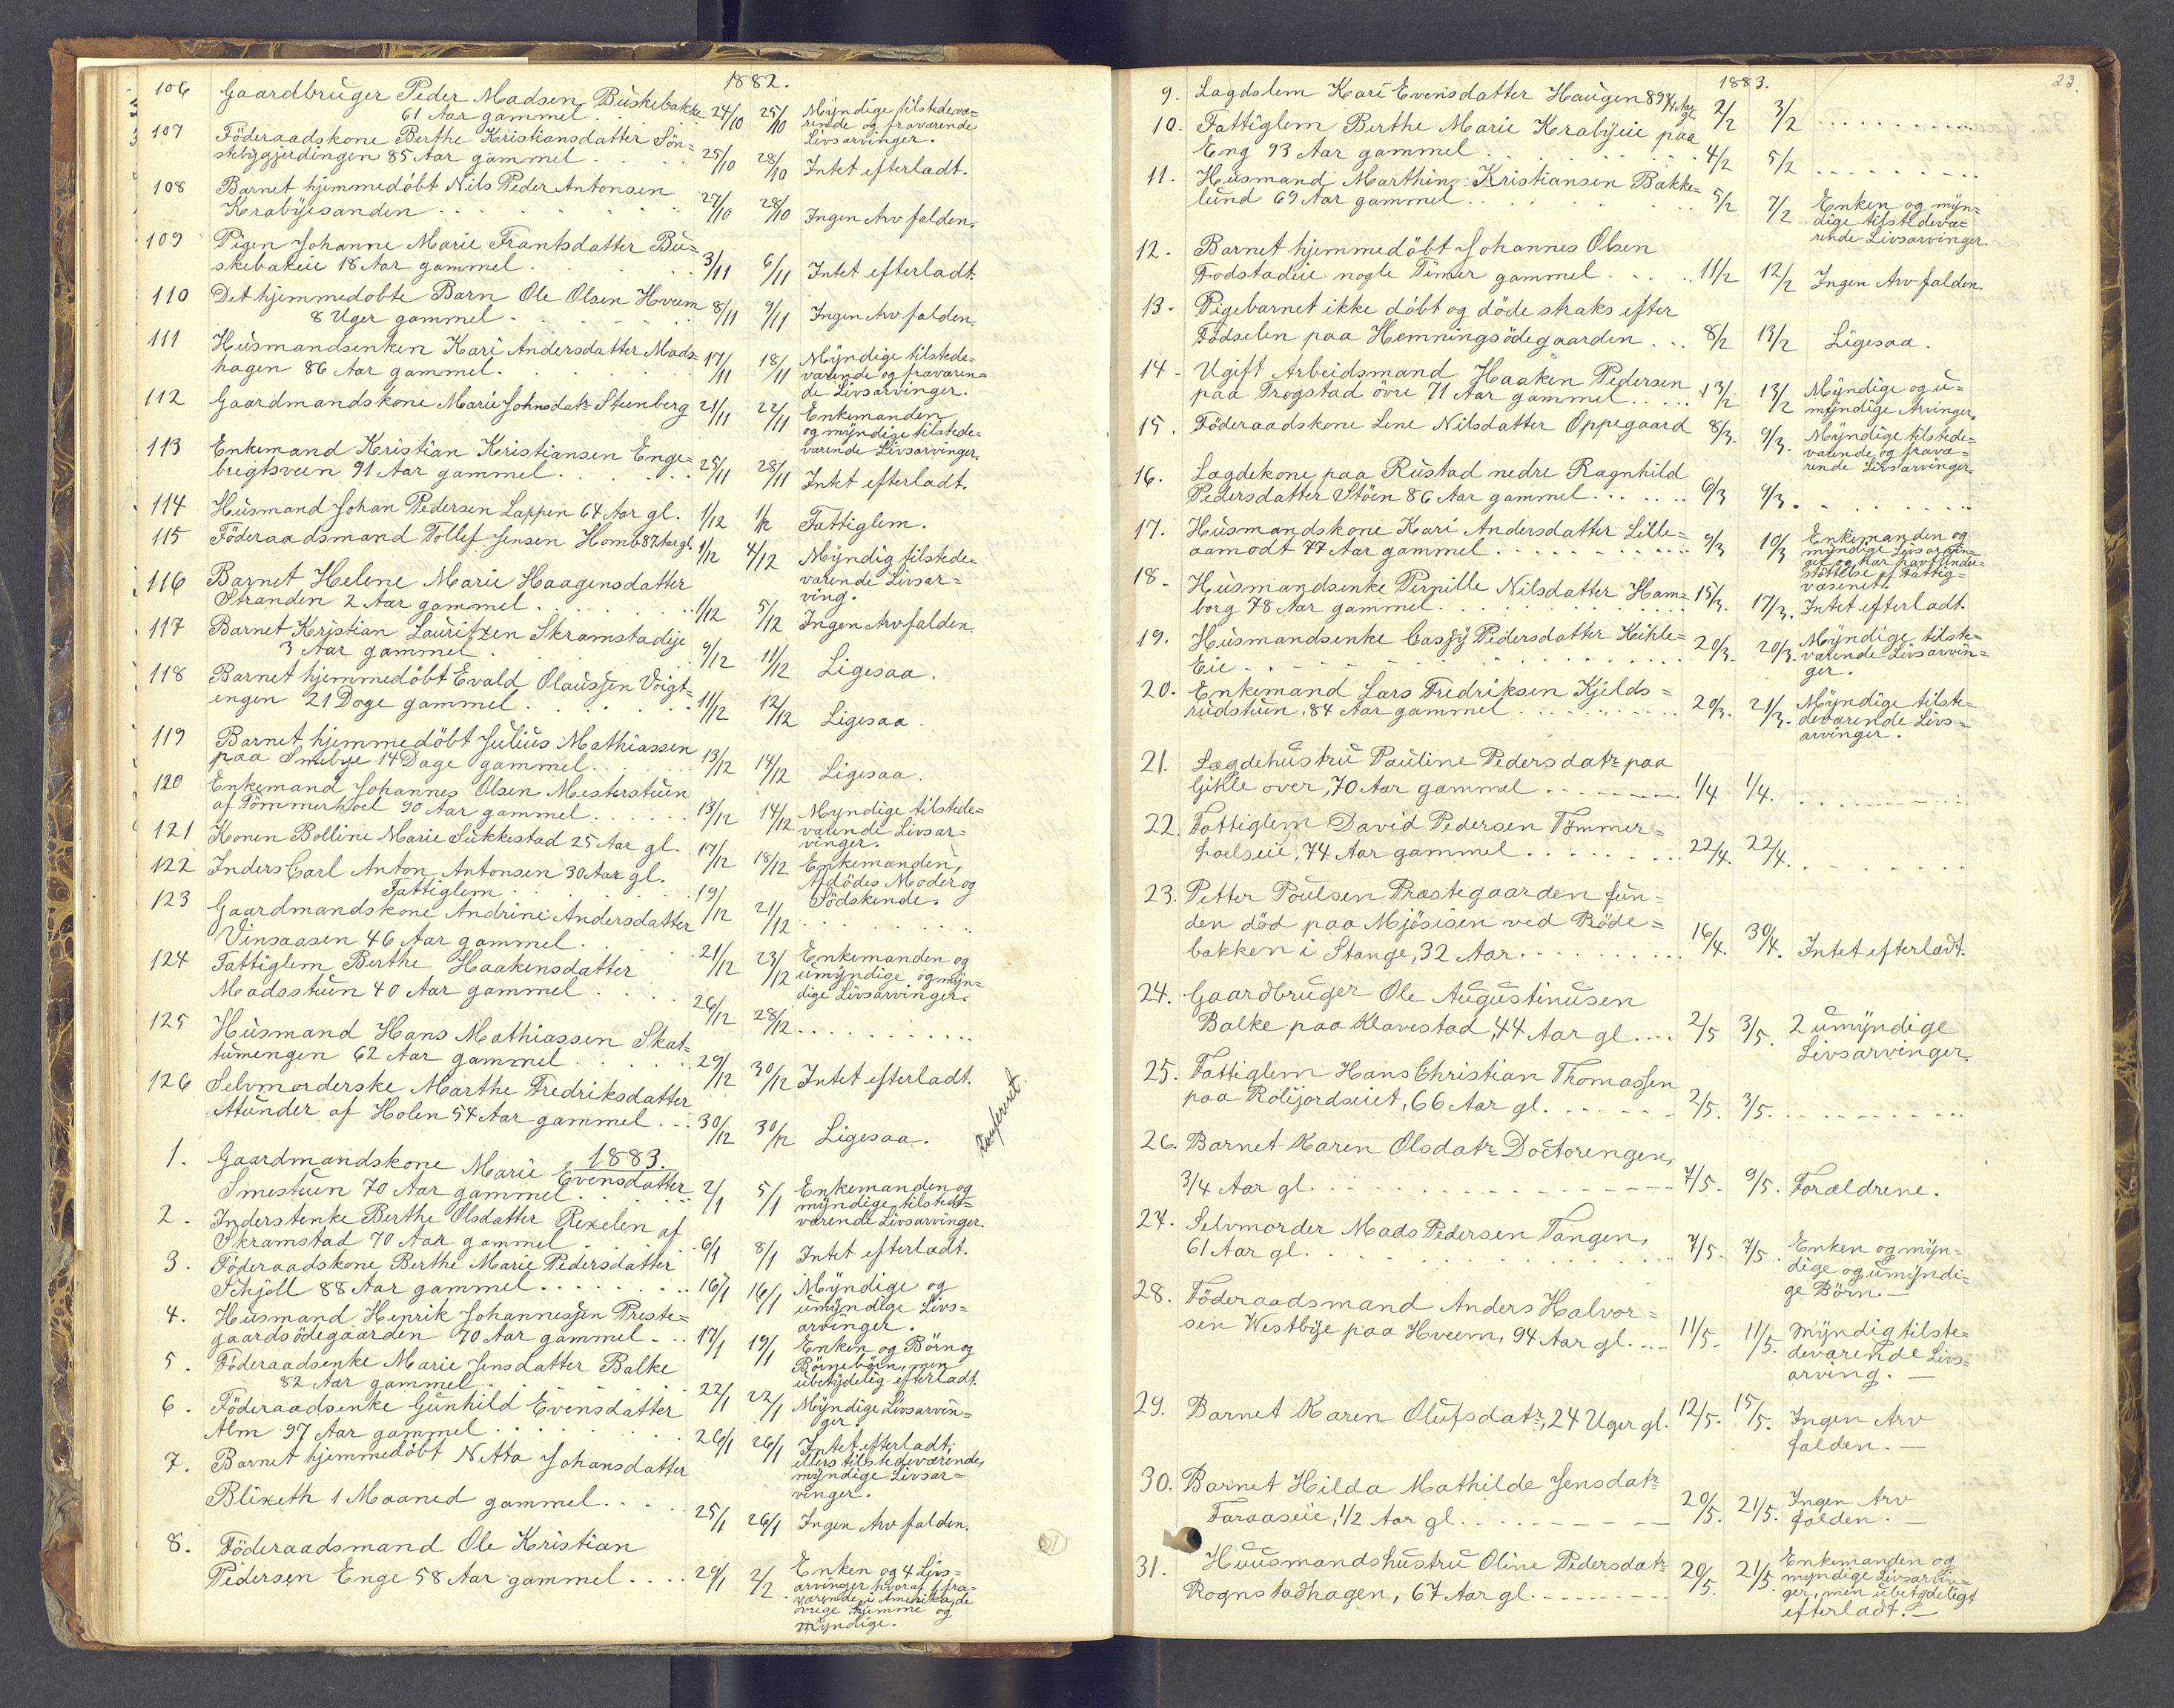 1882.
106 Gaardbruger Peder Madsen Buskebakke
61 Aar gammel . . . . 24/10 25/10 Myndige tilstedevæ=
rende og fraværende
Livsarvinger.
107 Föderaadskone Berthe Kristiansdatter Sön=
stebygjerdingen 85 Aar gammel . . . 25/10 28/10 Intet efterladt.
108 Barnet hjemmedöbt Nils Peder Antonsen
Krabyesanden . . . . . . 27/10 28/10 Ingen Arv falden.
109 Pigen Johanne Marie Frantsdatter Bu=
skebakeie 18 Aar gammel . . . . 3/11 6/11 Intet efterladt.
110 Det hjemmedöbte Barn Ole Olsen Hveem
8 Uger gammel . . . . . 8/11 9/11 Ingen Arv falden.
111 Husmandsenken Kari Andersdatter Mads=
hagen 86 Aar gammel . . . . 17/11 18/11 Myndige tilstede=
værende og fraværen=
de Livsarvinger.
112 Gaardmandskone Marie Johnsdatr Steenberg 21/11 22/11 Enkemanden
og myndige tilstede=
værende Livsarvinger.
113 Enkemand Kristian Kristiansen Enge=
bregtsveen 91 Aar gammel . . . . 25/11 28/11 Intet efterladt.
114 Husmand Johan Pedersen Lappen 64 Aar gl. 1/12 1/12 Fattiglem.
115 Föderaadsmand Tollef Jensen Homb 87 Aar gl. 1/12 4/12 Myndig tilstede=
værende Livsar=
ving.
116 Barnet Helene Marie Haagensdatter
Stranden 2 Aar gammel . . . . 1/12 5/12 Ingen Arv falden.
117 Barnet Kristian Lauritzen Skramstadeje
3 Aar gammel . . . . 9/12 11/12 Ligesaa.
118 Barnet hjemmedöbt Evald Olaussen Voigt=
engen 21 Dage gammel . . . . 11/12 12/12 Ligesaa.
119 Barnet hjemmedöbt Julius Mathiassen
paa Smebye 14 Dage gammel . . . 13/12 14/12 Ligesaa.
120 Enkemand Johannes Olsen Mesterstuen
af Tömmerhoel 90 Aar gammel . . . . 13/12 14/12. Myndige tilstede=
værende Livsar=
vinger.
121 Konen Bolline Marie Sukkestad 25 Aar gl. 17/12 18/12 Enkemanden,
Afdödes Moder og
Södskende.
122 Inders Carl Anton Antonsen 30 Aar gl.
Fattiglem . . . . 19/12 21/12 . . . . .
123 Gaardmandskone Andrine Andersdatter
Vinsaasen 46 Aar gammel . . . . 21/12 23/12 Enkemanden og
umyndige og myn=
dige Livsarvinger.
124 Fattiglem Berthe Haakensdatter
Madsstuen 40 Aar gammel . . . . 26/12 28/12 . . . . .
125 Husmand Hans Mathiassen Skat=
tumengen 62 Aar gammel . . . . 29/12 30/12 Intet efterladt.
126 Selvmorderske Marthe Fredriksdatter
Attunder af Holen 54 Aar gammel . . . 30/12 30/12 Ligesaa.
Konfereret
1883.
1. Gaardmandskone Marie Evensdatter
Smestuen 70 Aar gammel . . . . 2/1 5/1 Enkemanden og
myndige tilstede=
værende Livsarvinger.
2. Inderstenke Berthe Olsdatter Rexelen af
Skramstad 70 Aar gammel . . . . 6/1 8/1 Intet efterladt.
3. Föderaadskone Berthe Marie Pedersdatter
Schjöll 88 Aar gammel . . . . 16/1 16/1 Myndige og
umyndige Livs=
arvinger.
4. Husmand Henrik Johannessen Preste=
gaardsödegaarden 70 Aar gammel . . . 17/1 19/1 Enken og Börn og
Börnebörn, men
ubetydelig efterladt.
5. Föderaadsenke Marie Jensdatter Balke
82 Aar gammel . . . . 22/1 22/1 Myndige Livsarvin=
ger.
6. Föderaadsenke Gunhild Evensdatter
Alm 97 Aar gammel . . . . 26/1 26/1 Intet efterladt,
ellers tilstedeværende,
myndige Livsar=
vinger.
7. Barnet hjemmedöbt Netta Johansdatter
Blixeth 1 Maaned gammel . . . . 25/1 26/1 Ingen Arv falden.
8. Föderaadsmand Ole Kristian
Pedersen Enge 58 Aar gammel . . . . 29/1 2/2 Enken og 4 Livs=
arvinger hvoraf 1 fra=
værende i Amerika, de
övrige hjemme og
myndige.
1883.
23.
9. Lægdslem Kari Evensdatter Haugen 89 3/4 Aar gl. 2/2 3/2 . . . . .
10. Fattiglem Berthe Marie Krabyeie paa
Eng 93 Aar gammel . . . . 4/2 5/2 . . . . .
11. Husmand Marthin Kristiansen Bakke=
lund 69 Aar gammel . . . . 5/2 7/2 Enken og myn=
dige tilstedevæ=
rende Livsarvinger.
12. Barnet hjemmedöbt Johannes Olsen
Fodstadeie nogle Timer gammel . . . . 11/2 12/2 Ingen Arv falden.
13. Pigebarnet ikke döbt og döde straks efter
Födselen paa Hemningsödegaarden . . . 8/2 13/2 Ligesaa.
14. Ugift Arbeidsmand Haaken Pedersen
paa Frogstad övre 71 Aar gammel . . . . 13/2 13/2 Myndige og u=
myndige Arvinger.
15. Föderaadskone Lene Nilsdatter Oppegaard 8/3. 9/3. Myndige tilstede=
værende og fravæ=
rende Livsarvinger.
16. Lægdekone paa Rustad nedre Ragnhild
Pedersdatter Stöen 86 Aar gammel . . . . 6/3 9/3. . . . . .
17. Husmandskone Kari Andersdatter Lille=
aamodt 77 Aar gammel . . . . 9/3 10/3 Enkemanden og
myndige Livsarvin=
ger og har havt under=
støttelse af Fattig=
væsenet.
18. Husmandsenke Pernille Nilsdatter Ham=
borg 78 Aar gammel . . . . 15/3. 17/3. Intet efterladt.
19. Husmandsenke Cassy Pedersdatter Kihle=
Eie . . . . 20/3. 20/3. Myndige tilste=
værende Livsarvin=
ger.
20. Enkemand Lars Fredriksen Kjelds=
rudstuen, 84 Aar gammel . . . . 20/3. 21/3. Myndige tilste=
deværende Livs=
arvinger.
21. Lægdehustru Pauline Pedersdatr paa
Gihle over, 70 Aar gammal . . . . 1/4 1/4. . . . . .
22. Fattiglem David Pedersen Tömmer=
hoelseie, 74 Aar gammel . . . . 22/4. 22/4. . . . . .
23. Petter Poulsen Præstegaarden fun=
den död paa Mjösisen ved Röde=
bakken i Stange, 32 Aar . . . . 16/4. 30/4. Intet efterladt.
24. Gaardbruger Ole Augustinusen
Balke paa Klavestad, 44 Aar gl. . . . 2/5 3/5. 2 umyndige
Livsarvinger.
25. Fattiglem Hans Christian Thomassen
paa Rölijordseiet, 66 Aar gl. . . . . 2/5. 3/5. . . . . .
26. Barnet Karen Olsdatr Doctorengen,
3/4 Aar gl. . . . . 7/5. 9/5. Forældrene.
27. Selvmorder Mads Pedersen Tangen,
61 Aar gl. . . . . 7/5. 7/5. Enken og myn=
dige og umyndi=
ge Börn. —
28. Föderaadsmand Anders Halvor=
sen Westbye paa Hveem, 94 Aar gl. . . . 11/5. 11/5. Myndig tilste=
deværende Livs=
arving. —
29. Barnet Karen Olufsdatr, 24 Uger gl. 12/5. 15/5. Ingen Arv
falden. —
30. Barnet Hilda Mathilde Jensdatr
Faraaseie, 1/2 Aar gl. . . . . 20/5. 21/5. Ingen Arv
falden. —
31. Huusmandshustru Oline Pedersdatr
Rognstadhagen, 67 Aar gl. . . . . 20/5. 21/5. Enkemanden og
myndige Livsarvin=
ger, men ubetydeligt
efterladt. —